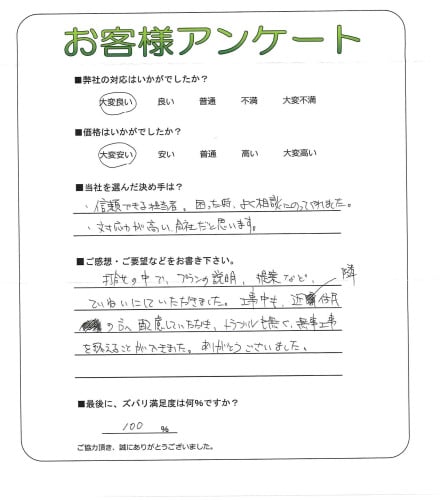 お客様アンケート
■弊社の対応はいかがでしたか？
大変良い 良い 普通 不満 大変不満
■価格はいかがでしたか？
大変安い 安い 普通 高い 大変高い
■当社を選んだ決め手は？
・信頼できる担当者。困った時、よく相談にのってくれました。
・対応力が高い会社だと思います。
■ご感想・ご要望などをお書き下さい。
打合せの中で、プランの説明、提案など、
ていねいにしていただきました。工事中も、近隣住民
の方へ配慮していただき、トラブルも無く、無事工事
を終えることができました。ありがとうございました。
■最後に、ズバリ満足度は何%ですか？
100 %
ご協力頂き、誠にありがとうございました。